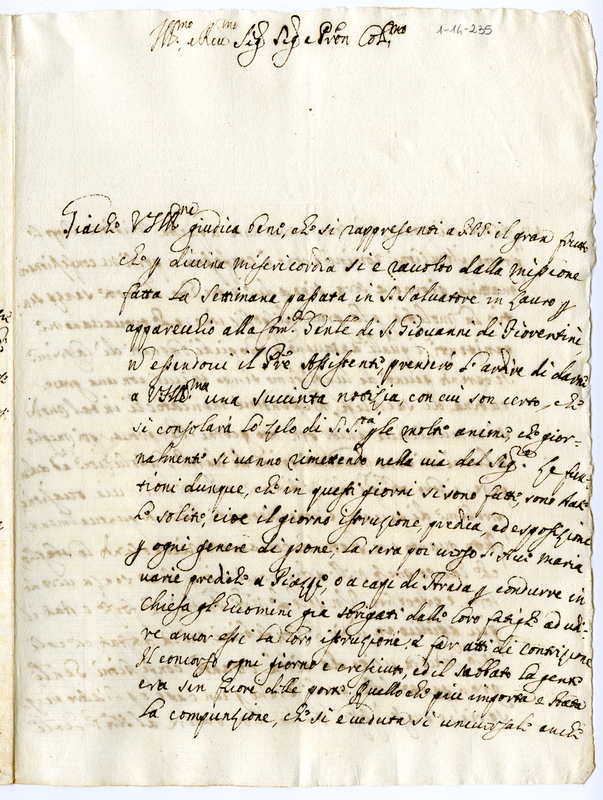 Ill.mo e Rev.mo Sig. Sig. e Pron Col.mo
1-14-235
Giache V.S. Ill.ma giudica bene, che si rappresenti a il gran frutto
che p divina misericordia si e racolto dalla missione
fatta la settimana passata in S. Salvatore in Lauro p
apparecchio alla Com.e Gen.le di S. Giovanni di Fiorentini
n essendovi il Pre Assistente, prenderò l'ardire di darne
a V.S. Ill.ma una succinta notizia, con cui son certo, che
si consolarà lo zelo di S. S.tà p le molte anime, che gior-
nalmente si vanno rimettendo nella via del Sig.re Le fun-
tioni dunque, che in questi giorni si sono fatte, sono state
le solite, cioe il giorno istruzione, predica, ed esposizione
p ogni genere di psone; la sera poi verso l'Ave Maria
varie prediche a Piazze, o a capi di strada p condurre in
chiesa gl'uomini già sbrigati dalle loro fatighe ad udi-
re ancor essi la loro istruzione, e far atti di contrizione
Il concorso ogni giorno e cresciuto, ed il sabbato la gente
era sin fuori delle porte. Quello che piu importa e stata
la compunzione, che si e veduta si universale anche